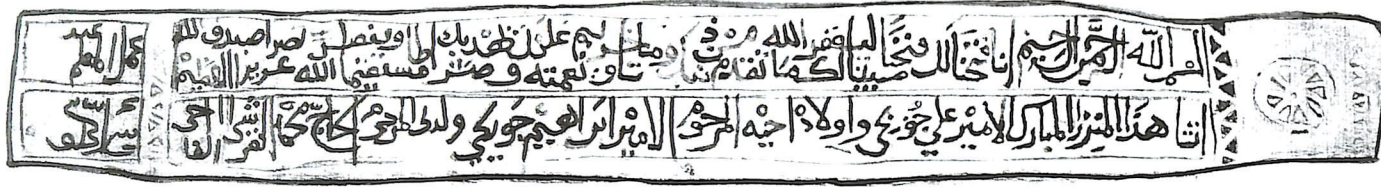 بسم الله الرحمن الرحيم انا فتحنا لك فتحا مبينا ليغفر لك الله ما تقدم من ذنبك وما تاخر ويتم نعمته عليك ويهديك صراطا مستقيما وينصرك الله نصرا عزيزا صدق الله العظيم عمل المعلم عبد
انشا هذا المبارك الامير علي جوربجي واولاد اخيه المرحوم الامير ابراهيم جوربجي ولدى المرحوم الحاج محمد